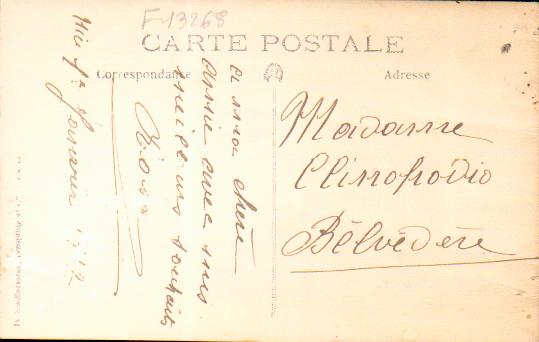 F-13268
CARTE POSTALE
Correspondance
Adresse
Nice 1er Janvier
a ma chère
amie avec mes
meilleurs souhaits
Madame
Clinopodio
Belvédère